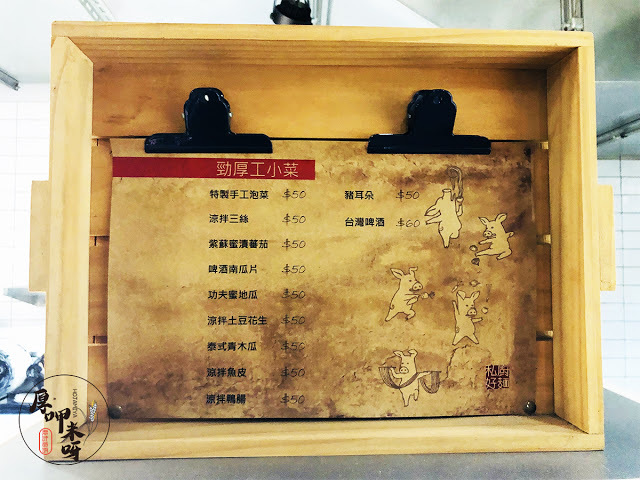 勁厚工小菜
特製手工泡菜 $50
涼拌三絲 $50
紫蘇蜜漬蕃茄 $50
啤酒南瓜片 $50
功夫蜜地瓜 $50
涼拌土豆花生 $50
泰式青木瓜 $50
涼拌魚皮 $50
涼拌鴨腸 $50
豬耳朵 $50
台灣啤酒 $60
私廚
好麵
厚呷米呀